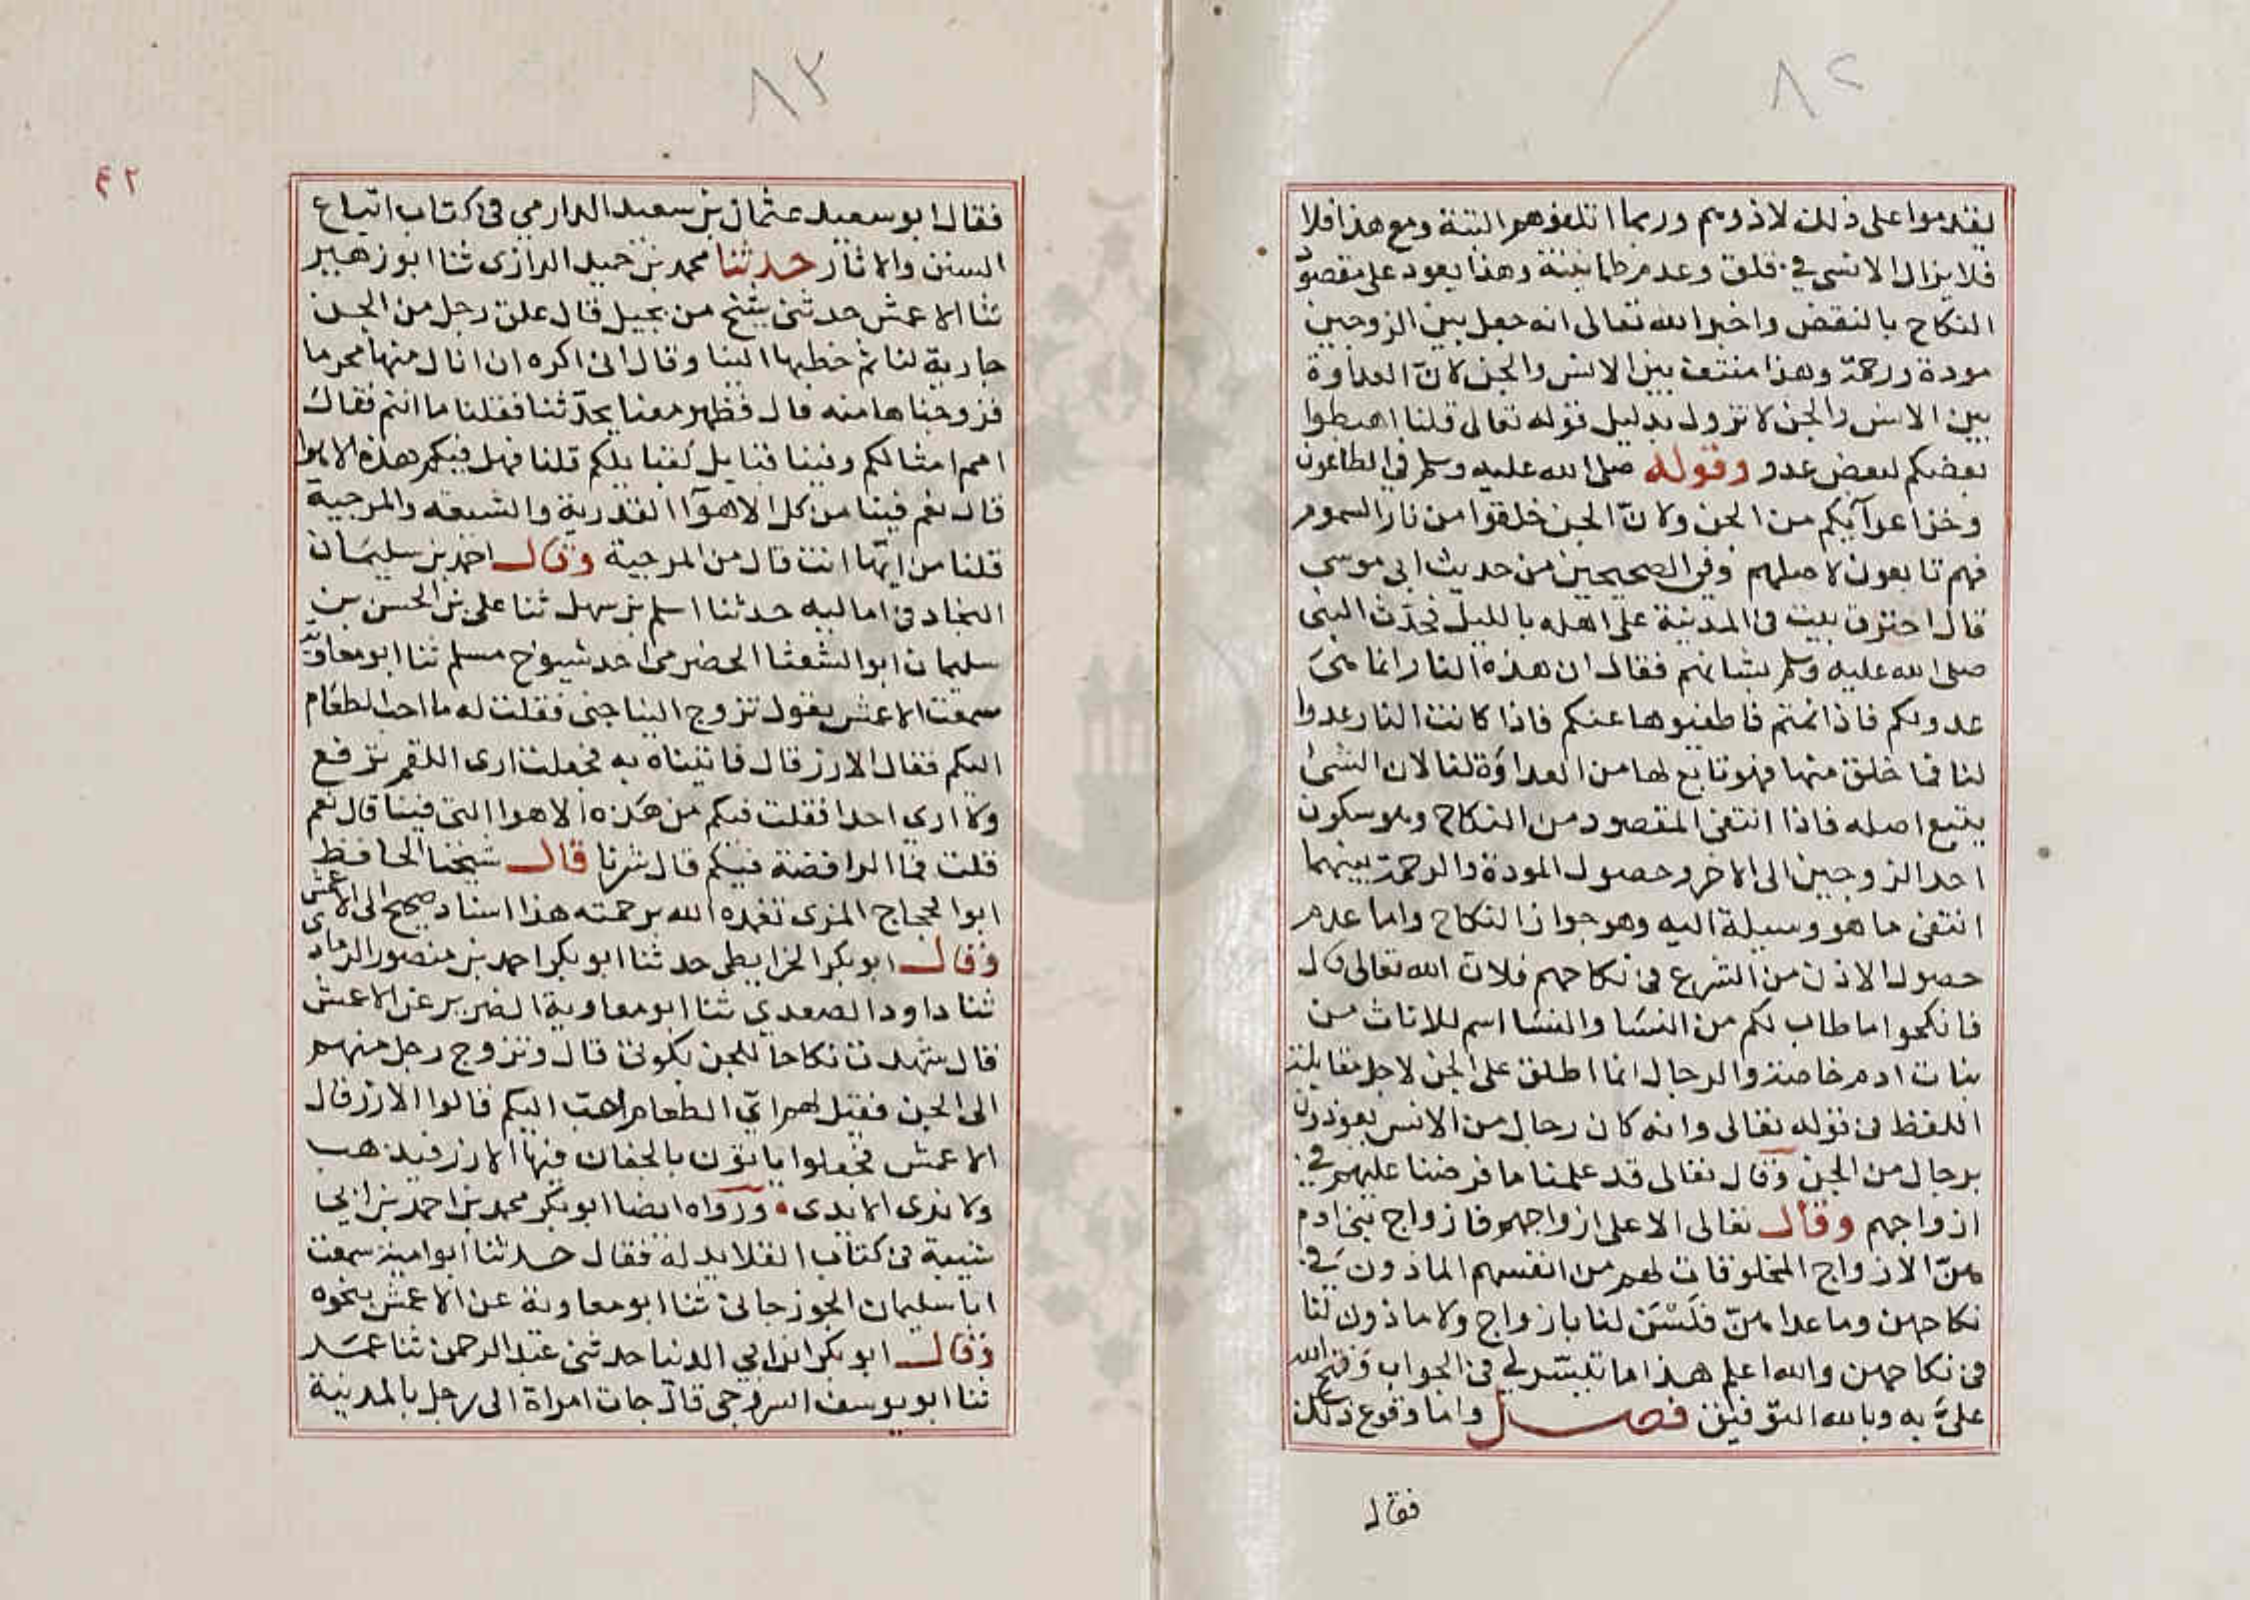 ٨٢
يقدموا على ذلك لاذوهم وربما اتلفوهم البتة ومع هذا فلا
فلا يزال الانسي في قلق وعدم طمانينة وهذا يعود على مقصود
النكاح بالنقض واخبر الله تعالى انه جعل بين الزوجين
مودة ورحمة وهذا منتف بين الانس والجن لان العداوة
بين الانس والجن لا تزول بدليل قوله تعالى قلنا اهبطوا
بعضكم لبعض عدو وقوله صلى الله عليه وسلم في الطاعون
وخز اعدآيكم من الجن ولان الجن خلقوا من نار السموم
فهم تابعون لاصلهم وفي الصحيحين من حديث ابي موسى
قال احترق بيت في المدينة على اهله بالليل فحدث النبي
صلى الله عليه وسلم بشانهم فقال ان هذه النار انما هي
عدو لكم فاذا نمتم فاطفيوها عنكم فاذا كانت النار عدوا
لنا فما خلق منها فهو تابع لها من العداوة لنا لان الشئ
يتبع اصله فاذا انتفى المقصود من النكاح وهو سكون
احد الزوجين الى الاخر وحصول المودة والرحمة بينهما
انتفى ما هو وسيلة اليه وهو جواز النكاح واما عدم
حصول الاذن من الشرع في نكاحهم فلان الله تعالى قال
فانكحوا ما طاب لكم من النسا والنسا اسم للاناث من
بنات ادم خاصة والرجال انما اطلق على الجن لاجل مقابلة
اللفظ في قوله تعالى وانه كان رجال من الانس يعوذون
برجال من الجن وقال تعالى قد علمنا ما فرضنا عليهم في
ازواجهم وقال تعالى الا على ازواجهم فازواج بني ادم
هن الازواج المخلوقات لهم من انفسهم الماذون في
نكاحهن وما عداهن فلسن لنا بازواج ولا ماذون لنا
في نكاحهن والله اعلم هذا ما تيسر لي في الجواب وفتح الله
علي به وبالله التوفيق فصل واما وقوع ذلك
فقال
٨٣
٤٢
فقال ابو سعيد عثمان بن سعيد الدارمي في كتاب اتباع
السنن والاثار حدثنا محمد بن حميد الرازى ثنا ابو زهير
ثنا الاعمش حدثنى شيخ من بجيل قال علق رجل من الجن
جارية لنا ثم خطبها الينا وقال انى اكره ان انال منها محرما
فزوجناها منه قال فظهر معنا يحدثنا فقلنا ما انتم فقال
امم امثالكم وفينا قبايل كقبايلكم قلنا فهل فيكم هذه الاهوا
قال نعم فينا من كل الاهوآ القدرية والشيعه والمرجية
قلنا من ايها انت قال من المرجية وقال احمد بن سليمان
النجاد في اماليه حدثنا اسلم بن سهل ثنا على بن الحسن بن
سليمان ابو الشعثا الحضرمى احد شيوخ مسلم ثنا ابو معاوية
سمعت الاعمش يقول تزوج الينا جنى فقلت له ما احب الطعام
اليكم فقال الارز قال فاتيناه به فجعلت ارى اللقم ترفع
ولا ارى احدا فقلت فيكم من هذه الاهوا التى فينا قال نعم
قلت فما الرافضة فيكم قال شرنا قال شيخنا الحافظ
ابو الحجاج المزى تغمده الله برحمته هذا اسناد صحيح الى الاعمش
وقال ابو بكر الخرايطى حدثنا ابو بكر احمد بن منصور الرمادى
ثنا داود الصفدي ثنا ابو معاوية الضرير عن الاعمش
قال شهدت نكاحا للجن بكوثى قال وتزوج رجل منهم
الى الجن فقيل لهم اي الطعام احب اليكم قالوا الارز قال
الاعمش فجعلوا ياتون بالجفان فيها الارز فيذهب
ولا نرى الايدى ورواه ايضا ابو بكر محمد بن احمد بن ابي
شيبة في كتاب القلايد له فقال حدثنا ابو امية سمعت
ابا سليمان الجوزجانى ثنا ابو معاوية عن الاعمش بنحوه
وقال ابو بكر ابن ابي الدنيا حدثنى عبد الرحمن ثنا عمر
ثنا ابو يوسف السروجى قال جات امراة الى رجل بالمدينة